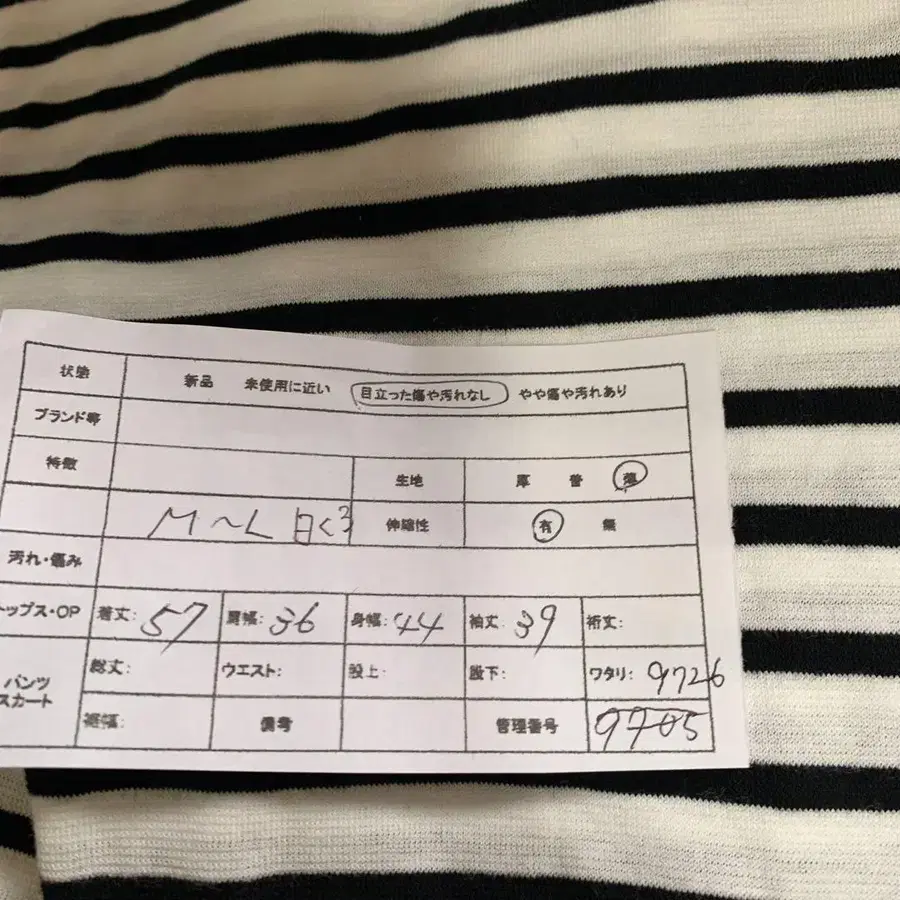 状態 新品 未使用に近い 目立った傷や汚れなし やや傷や汚れあり
ブランド等
特徴 生地 厚 普 薄
M~L 伸縮性 有 無
汚れ・傷み
トップス・OP 着丈: 57 肩幅: 36 身幅: 44 袖丈: 39 裄丈:
パンツ スカート 総丈: ウエスト: 股上: 股下: ワタリ: 9726
裾幅: 備考 管理番号 9705